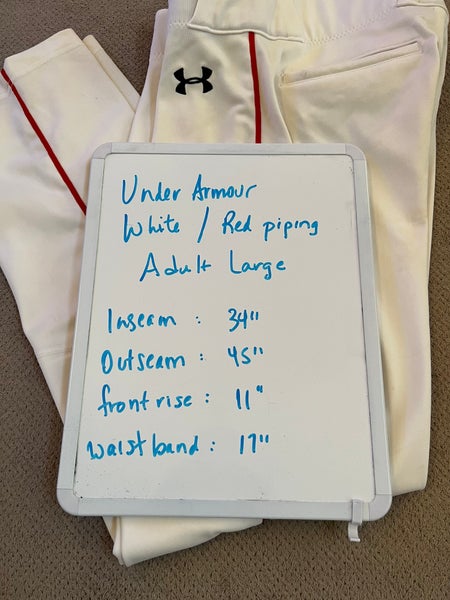 Under Armour
White / Red piping
Adult Large
Inseam : 34"
Outseam : 45"
front rise : 11"
waistband : 17"